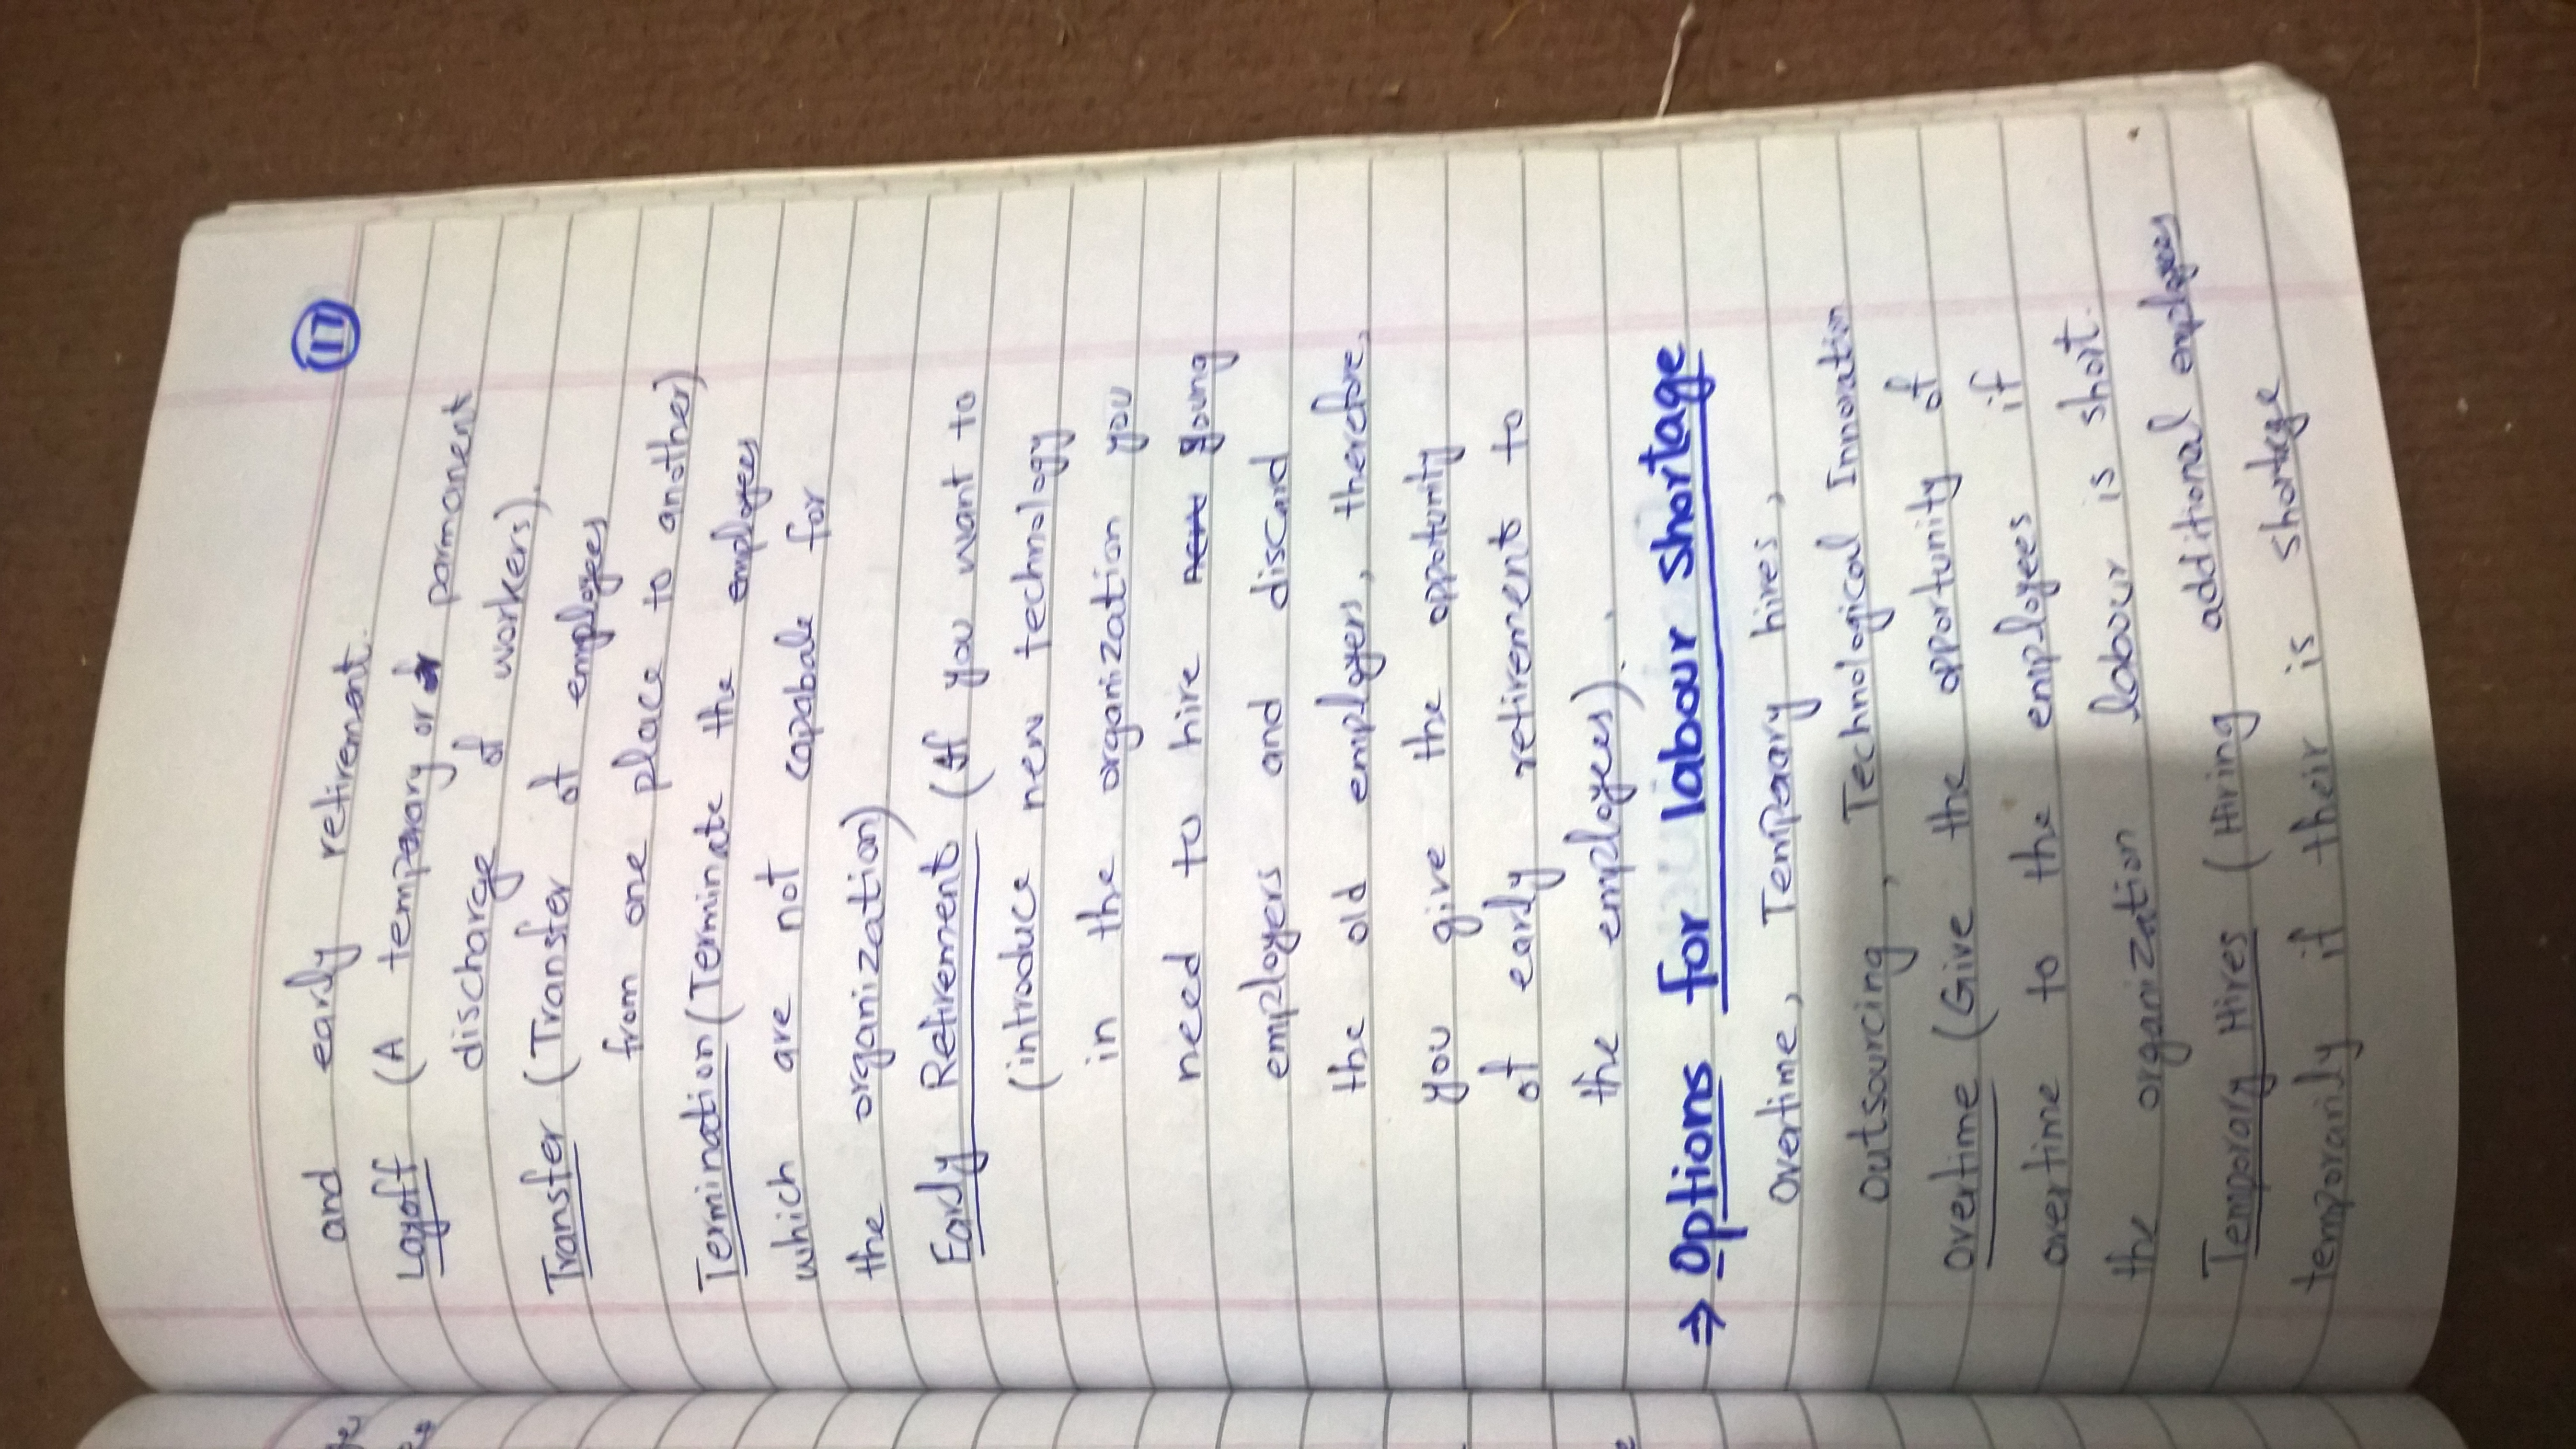 17
and early retirement.
Layoff (A temporary or parmanent
discharge of workers).
Transfer (Transfer of employees
from one place to another)
Termination (Terminate the employees
which are not capabale for
the organization)
Early Retirement (If you want to
(introduce new technology
in the organization you
need to hire new young
employers and discard
the old employers, therefore,
you give the oppotunity
of early retirement to
the employees).
⇒ Options for labour shortage
Overtime, Temporary hires,
Outsourcing, Technological Innovation
Overtime (Give the opportunity of
overtime to the employees if
the organization labour is short.
Temporary Hires (Hiring additional employees
temporarily if their is shortage